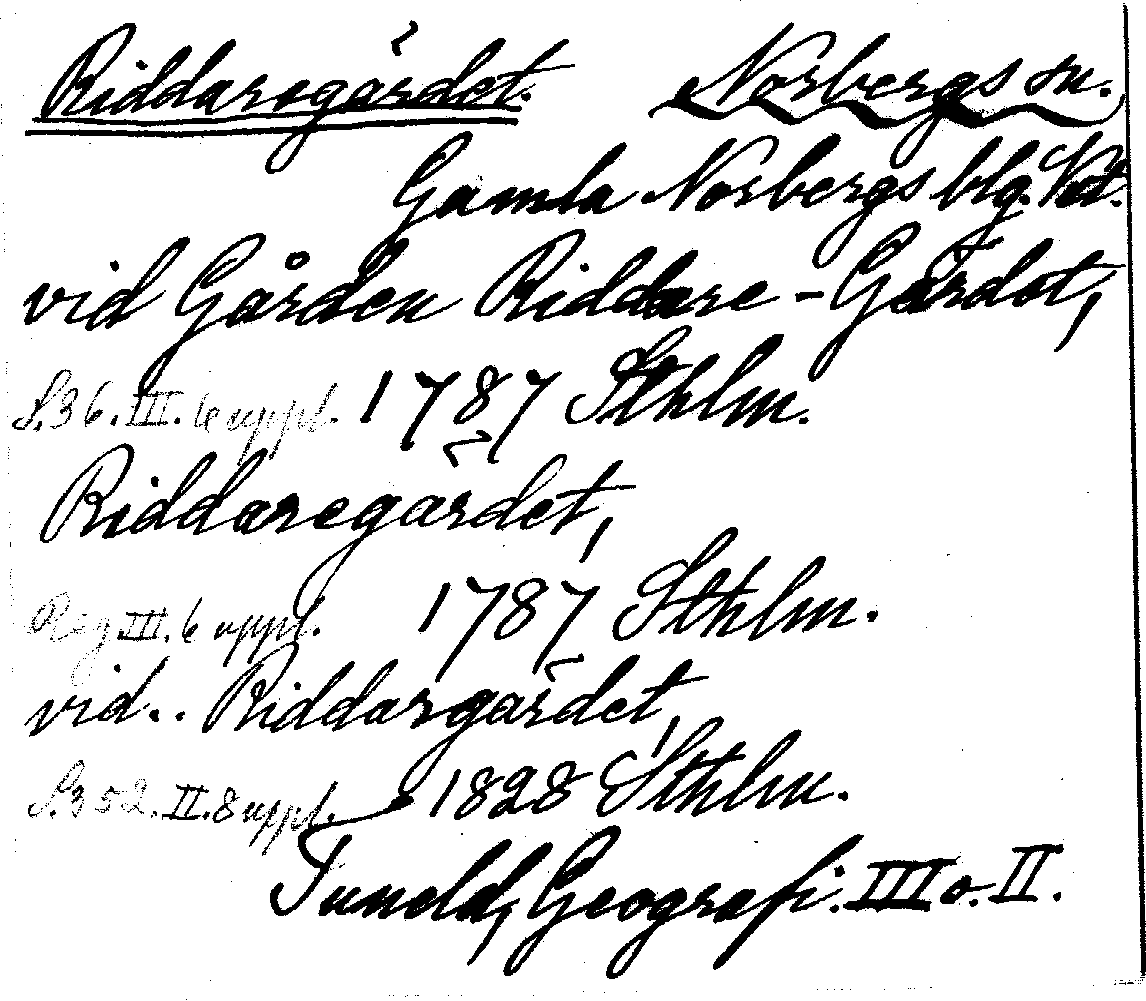 Riddaregärdet. Norbergs sn.
Gamla Norbergs blg. Vstm.
vid Gården Riddare-Gärdet,
S.36. III. 6 uppl. 1787 Sthlm.
Riddaregärdet,
Reg III. 6 uppl. 1787 Sthlm.
vid.. Riddargärdet,
S.352. II. 8 uppl. 1828 Sthlm.
Tuneld, Geografi. III o. II.